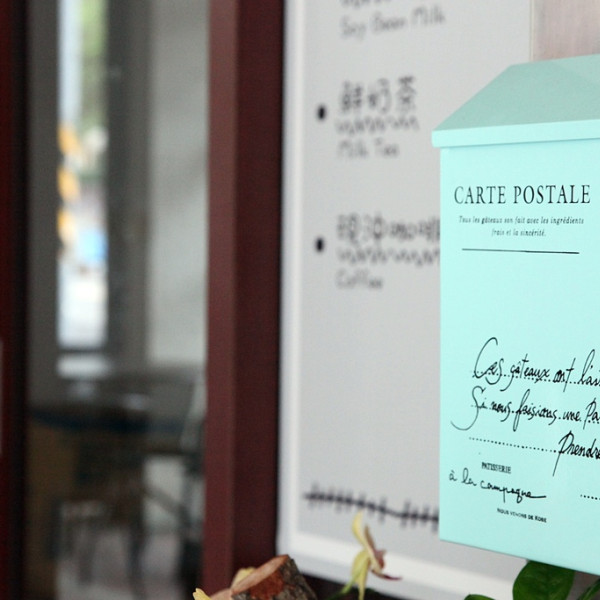 Soy Bean Milk
鮮奶茶
Milk Tea
現沖咖啡
Coffee
CARTE POSTALE
Tous les gâteaux son fait avec les ingrédients
frais et la sincérité.
Ces gâteaux ont l'ai
Si nous faisions une Pa
Prendre
PATISSERIE
à la campagne
NOUS VENONS DE ROBE